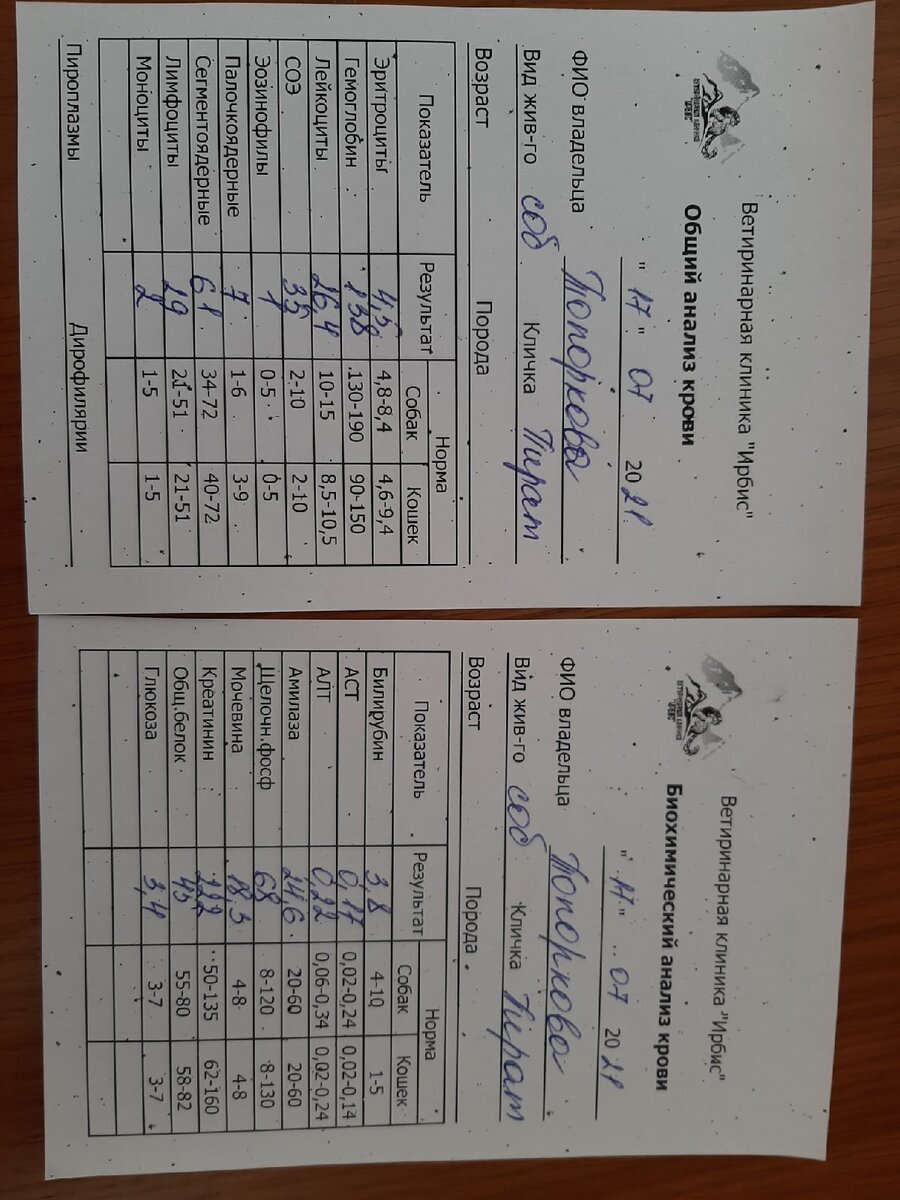 Ветиринарная клиника "Ирбис"
Общий анализ крови
"17" 07 2021
ФИО владельца Топоркова
Вид жив-го соб Кличка Пират
Возраст Порода
Показатель Результат Норма
Собак Кошек
Эритроциты 4,5 4,8-8,4 4,6-9,4
Гемоглобин 138 130-190 90-150
Лейкоциты 26,4 10-15 8,5-10,5
СОЭ 35 2-10 2-10
Эозинофилы 1 0-5 0-5
Палочкоядерные 7 1-6 3-9
Сегментоядерные 61 34-72 40-72
Лимфоциты 29 21-51 21-51
Моноциты 2 1-5 1-5
Пироплазмы Дирофилярии
Ветиринарная клиника "Ирбис"
Биохимический анализ крови
"17" 07 2021
ФИО владельца Топоркова
Вид жив-го соб Кличка Пират
Возраст Порода
Показатель Результат Норма
Собак Кошек
Билирубин 3,8 4-10 1-5
АСТ 0,17 0,02-0,24 0,02-0,14
АЛТ 0,22 0,06-0,34 0,02-0,24
Амилаза 24,6 20-60 20-60
Щелочн.фосф 68 8-120 8-130
Мочевина 18,3 4-8 4-8
Креатинин 222 50-135 62-160
Общ.белок 45 55-80 58-82
Глюкоза 3,4 3-7 3-7